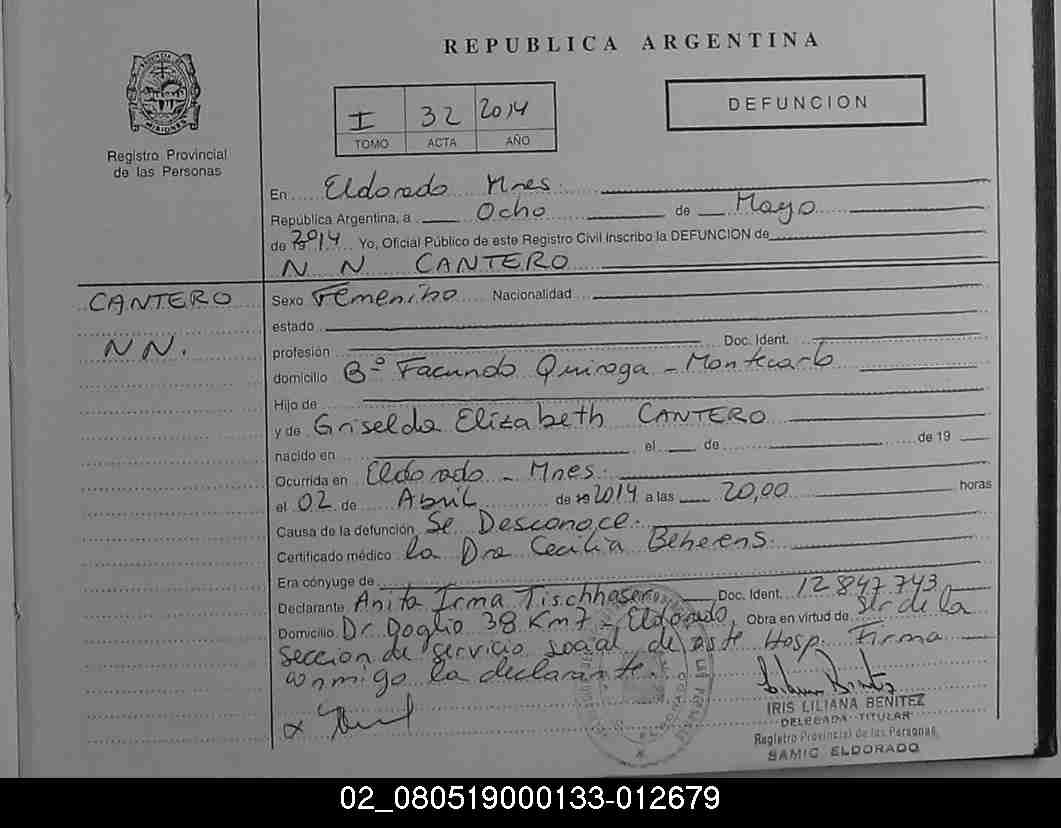 REPUBLICA ARGENTINA
PROVINCIA DE
MISIONES
Registro Provincial
de las Personas
I 32 2014
TOMO ACTA AÑO
DEFUNCION
En Eldorado Mnes.
República Argentina, a Ocho de Mayo
de 2014 Yo, Oficial Público de este Registro Civil inscribo la DEFUNCION de
N N CANTERO
CANTERO
NN.
Sexo Femenino Nacionalidad
estado
profesión Doc. Ident.
domicilio Bº Facundo Quiroga - Montecarlo
Hijo de
y de Griselda Elizabeth CANTERO
nacido en el de de 19
Ocurrida en Eldorado - Mnes.
el 02 de Abril de 19 2014 a las 20,00 horas
Causa de la defunción Se Desconoce.
Certificado médico la Dra Cecilia Beherens.
Era cónyuge de
Declarante Anita Irma Tischhauser Doc. Ident. 12.847.743
Domicilio Dr Goglio 38 Km7 - Eldorado, Obra en virtud de Ser de la
Seccion de servicio social de este Hosp. Firma
conmigo la declarante.
x
IRIS LILIANA BENITEZ
DELEGADA TITULAR
Registro Provincial de las Personas
SAMIC ELDORADO
02_080519000133-012679